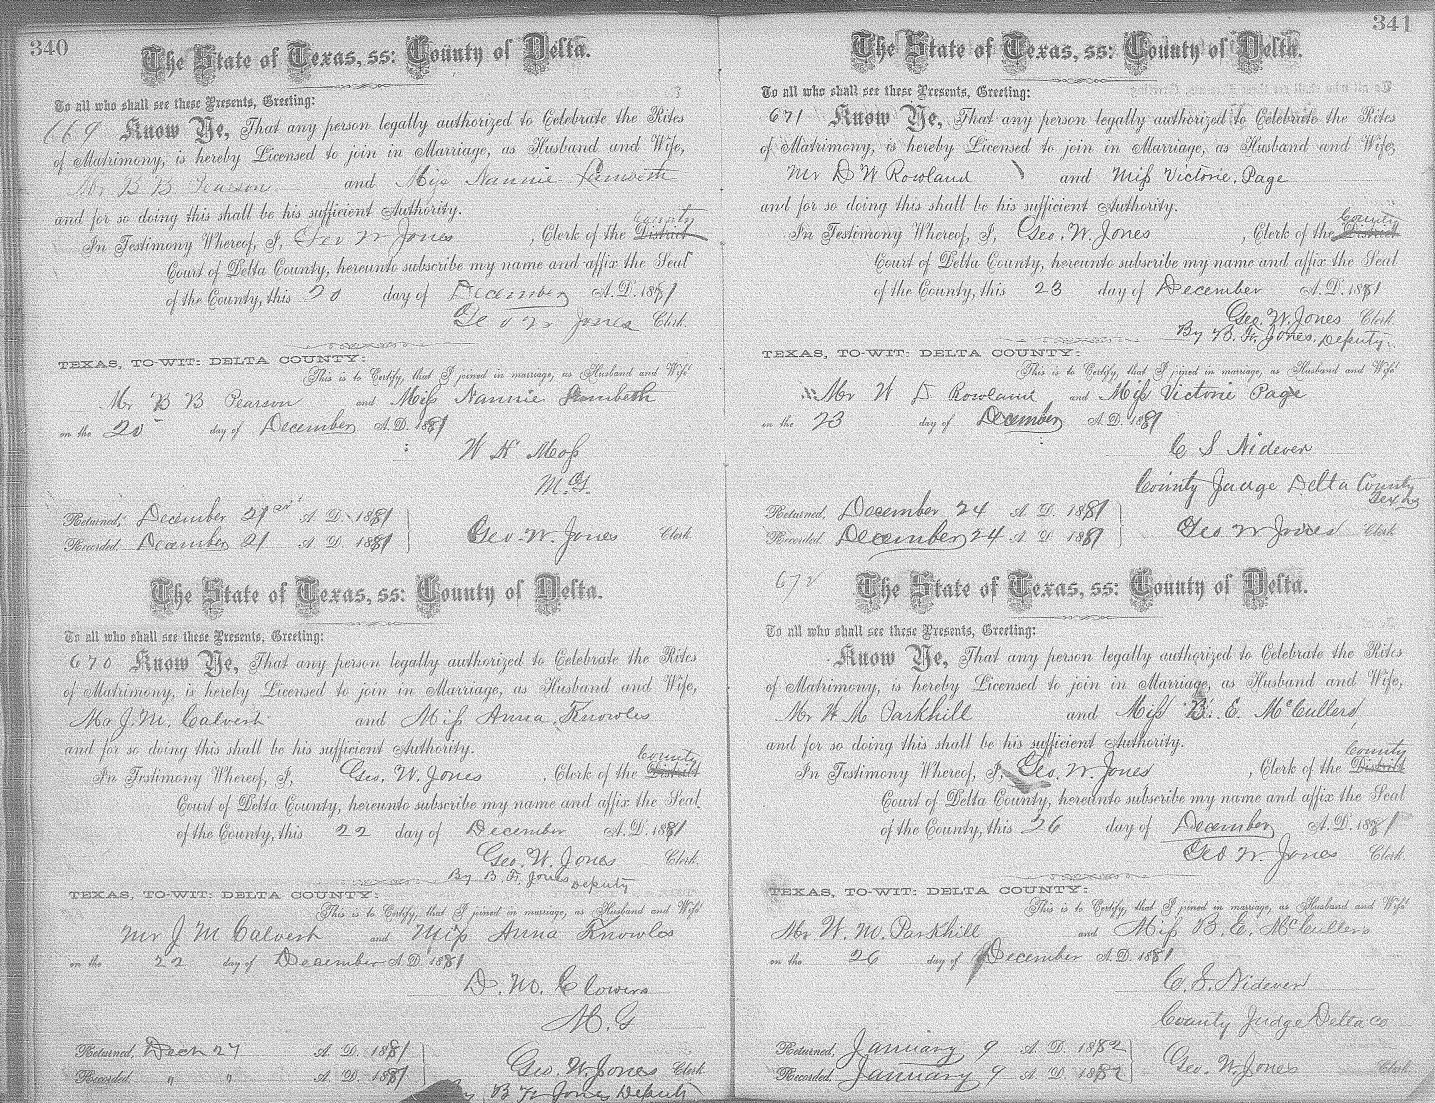 340
The State of Texas, ss: County of Delta.
To all who shall see these Presents, Greeting:
669 Know Ye, That any person legally authorized to Celebrate the Rites
of Matrimony, is hereby Licensed to join in Marriage, as Husband and Wife,
Mr B B Pearson and Miss Nannie
and for so doing this shall be his sufficient Authority.
County
In Testimony Whereof, I, Geo W Jones, Clerk of the District
Court of Delta County, hereunto subscribe my name and affix the Seal
of the County, this 20 day of December A.D. 1881
Geo W Jones Clerk.
TEXAS, TO-WIT: DELTA COUNTY:
This is to Certify, that I joined in marriage, as Husband and Wife
Mr B B Pearson and Miss Nannie
on the 20 day of December A.D. 1881
W K Moss
M.G.
Returned, December 21st A. D. 1881
Recorded, December 21 A. D. 1881
Geo. W. Jones Clerk
The State of Texas, ss: County of Delta.
To all who shall see these Presents, Greeting:
670 Know Ye, That any person legally authorized to Celebrate the Rites
of Matrimony, is hereby Licensed to join in Marriage, as Husband and Wife,
Mr J. M. Calvert and Miss Anna Knowles
and for so doing this shall be his sufficient Authority.
County
In Testimony Whereof, I, Geo. W. Jones, Clerk of the District
Court of Delta County, hereunto subscribe my name and affix the Seal
of the County, this 22 day of December A.D. 1881
Geo. W. Jones Clerk.
By B. F. Jones Deputy
TEXAS, TO-WIT: DELTA COUNTY:
This is to Certify, that I joined in marriage, as Husband and Wife
Mr J M Calvert and Miss Anna Knowles
on the 22 day of December A.D. 1881
D. M. Clowers
M. G
Returned, Decr 27 A. D. 1881
Recorded, " " A. D. 1881
Geo. W. Jones Clerk
By B F Jones Deputy
341
The State of Texas, ss: County of Delta.
To all who shall see these Presents, Greeting:
671 Know Ye, That any person legally authorized to Celebrate the Rites
of Matrimony, is hereby Licensed to join in Marriage, as Husband and Wife,
Mr D W Rowland and Miss Victorie Page
and for so doing this shall be his sufficient Authority.
County
In Testimony Whereof, I, Geo. W. Jones, Clerk of the District
Court of Delta County, hereunto subscribe my name and affix the Seal
of the County, this 23 day of December A.D. 1881
Geo. W. Jones Clerk
By B. F. Jones, Deputy.
TEXAS, TO-WIT: DELTA COUNTY:
This is to Certify, that I joined in marriage, as Husband and Wife
Mr W D Rowland and Miss Victorie Page
on the 23 day of December A.D. 1881
C S Nidever
County Judge Delta County
Texas
Returned, December 24 A. D. 1881
Recorded, December 24 A. D. 1881
Geo W Jones Clerk
672 The State of Texas, ss: County of Delta.
To all who shall see these Presents, Greeting:
Know Ye, That any person legally authorized to Celebrate the Rites
of Matrimony, is hereby Licensed to join in Marriage, as Husband and Wife,
Mr W M Parkhill and Miss B. E. McCullers
and for so doing this shall be his sufficient Authority.
County
In Testimony Whereof, I, Geo. W. Jones, Clerk of the District
Court of Delta County, hereunto subscribe my name and affix the Seal
of the County, this 26 day of December A.D. 1881
Geo W. Jones Clerk.
TEXAS, TO-WIT: DELTA COUNTY:
This is to Certify, that I joined in marriage, as Husband and Wife
Mr W. M. Parkhill and Miss B. E. McCullers
on the 26 day of December A.D. 1881
C. S. Nidever
County Judge Delta Co
Returned, January 9 A. D. 1882
Recorded, January 9 A. D. 1882
Geo. W. Jones Clerk